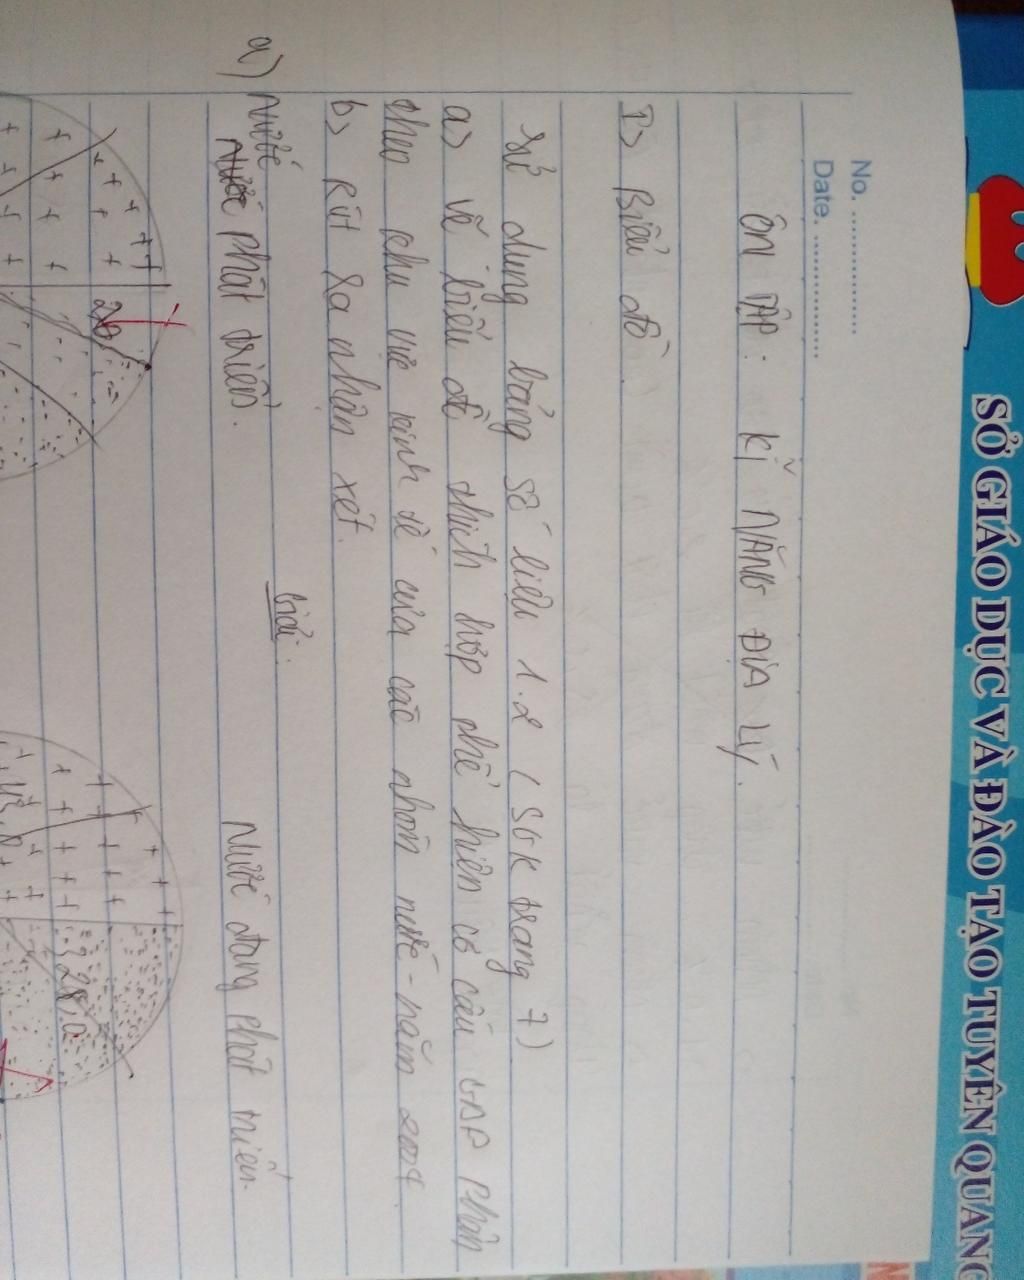 SỞ GIÁO DỤC VÀ ĐÀO TẠO TUYÊN QUANG
No. ....................
Date. ....................
ÔN TẬP: KĨ NĂNG ĐỊA LÝ.
I> Biểu đồ
Sử dụng bảng số liệu 1.2 (SGK trang 7)
a> vẽ biểu đồ thích hợp thể hiện cơ cấu GDP phân
theo khu vực kinh tế của các nhóm nước - năm 2004.
b> Rút ra nhận xét.
Giải.
a) Nước
phát triển.
Nước đang phát triển.